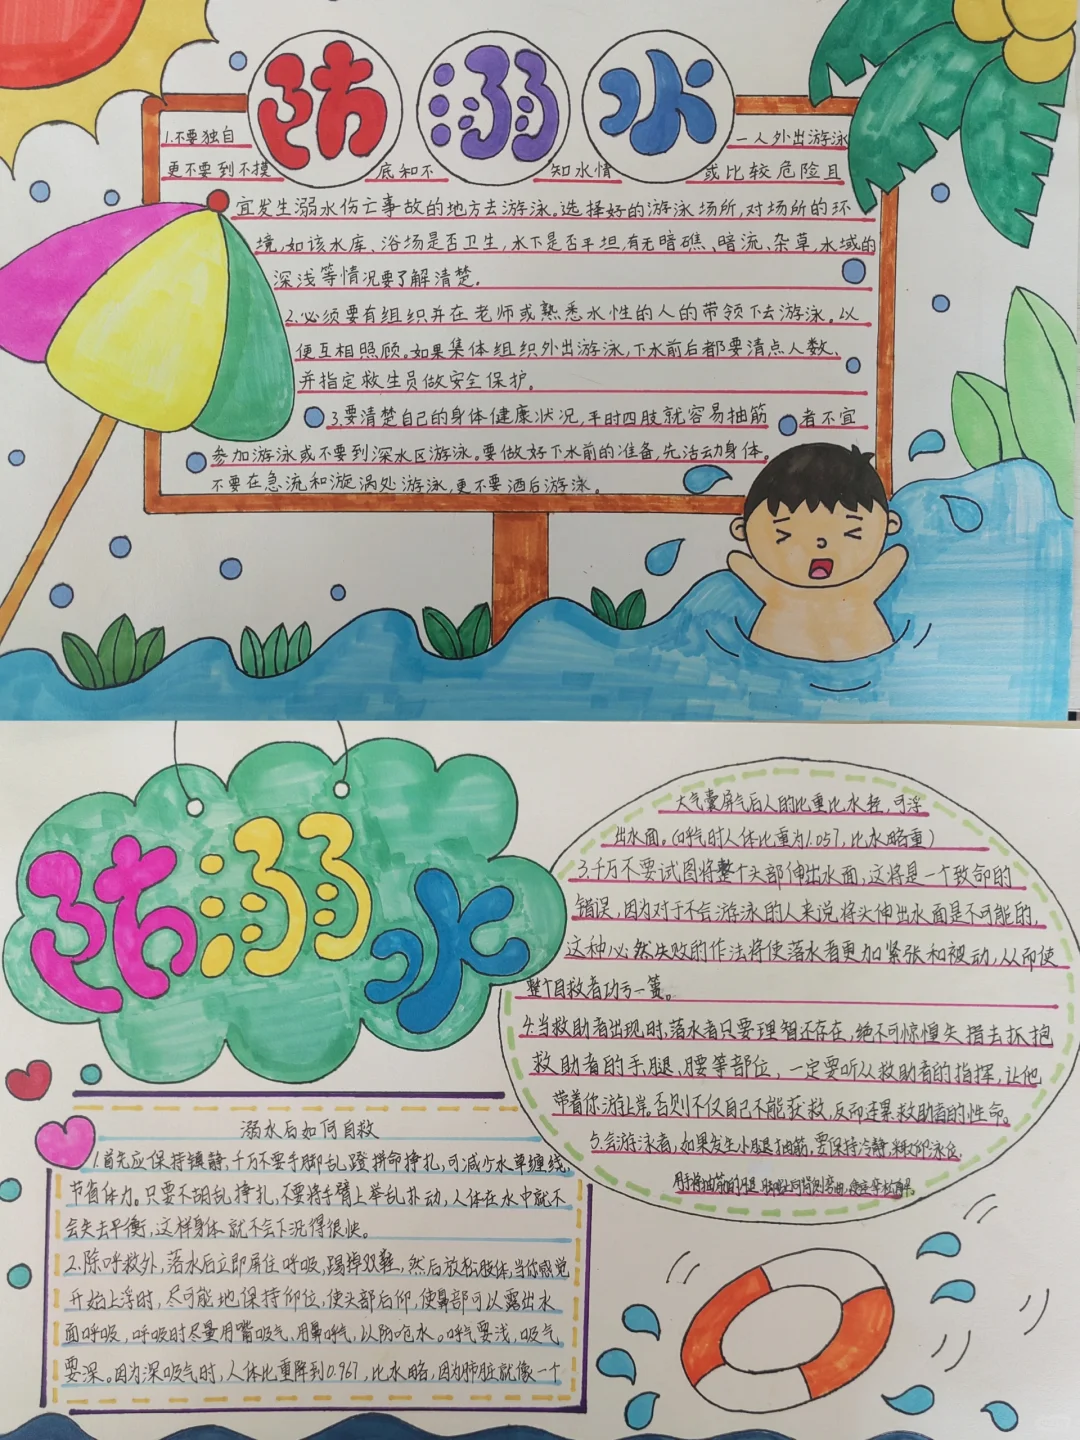 防溺水
1.不要独自一人外出游泳
更不要到不摸底和不知水情或比较危险且
宜发生溺水伤亡事故的地方去游泳。选择好的游泳场所,对场所的环
境,如该水库、浴场是否卫生,水下是否平坦,有无暗礁、暗流、杂草,水域的
深浅等情况要了解清楚。
2.必须要有组织并在老师或熟悉水性的人的带领下去游泳。以
便互相照顾。如果集体组织外出游泳,下水前后都要清点人数、
并指定救生员做安全保护。
3.要清楚自己的身体健康状况,平时四肢就容易抽筋者不宜
参加游泳或不要到深水区游泳。要做好下水前的准备,先活动身体。
不要在急流和漩涡处游泳,更不要酒后游泳。
防溺水
溺水后如何自救
1.首先应保持镇静,千万不要手脚乱蹬拼命挣扎,可减少水草缠绕,
节省体力。只要不胡乱挣扎,不要将手臂上举乱扑动,人体在水中就不
会失去平衡,这样身体就不会下沉得很快。
2.除呼救外,落水后立即屏住呼吸,踢掉双鞋,然后放松肢体,当你感觉
开始上浮时,尽可能地保持仰位,使头部后仰,使鼻部可以露出水
面呼吸,呼吸时尽量用嘴吸气、用鼻呼气,以防呛水。呼气要浅,吸气
要深。因为深吸气时,人体比重降到0.967,比水略,因为肺脏就像一个
大气囊屏气后人的比重比水轻,可浮
出水面。(呼气时人体比重为1.057,比水略重)
3.千万不要试图将整个头部伸出水面,这将是一个致命的
错误,因为对于不会游泳的人来说将头伸出水面是不可能的,
这种必然失败的作法将使落水者更加紧张和被动,从而使
整个自救者功亏一篑。
4.当救助者出现时,落水者只要理智还存在,绝不可惊惶失措去抓抱
救助者的手、腿、腰等部位,一定要听从救助者的指挥,让他
带着你游上岸。否则不仅自己不能获救,反而连累救助者的性命。
5.会游泳者,如果发生小腿抽筋,要保持冷静,采取仰泳位,
用手将抽筋的腿